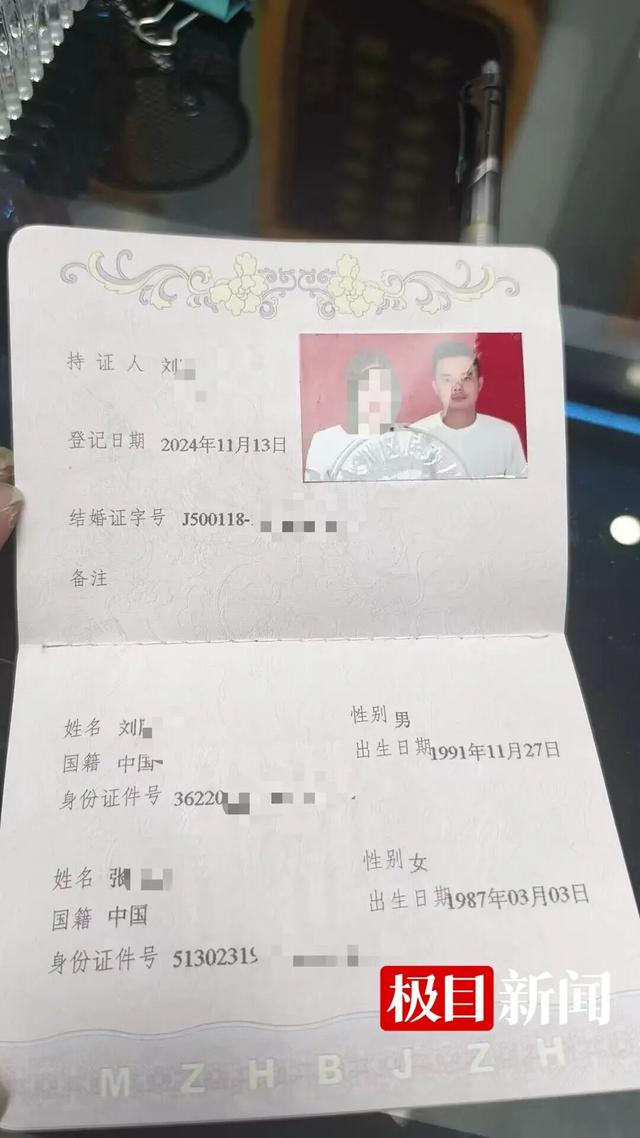 持证人 刘
登记日期 2024年11月13日
结婚证字号 J500118-
备注
姓名 刘 性别 男
国籍 中国 出生日期 1991年11月27日
身份证件号 36220
姓名 张 性别 女
国籍 中国 出生日期 1987年03月03日
身份证件号 51302319
极目新闻
MZHBJZH